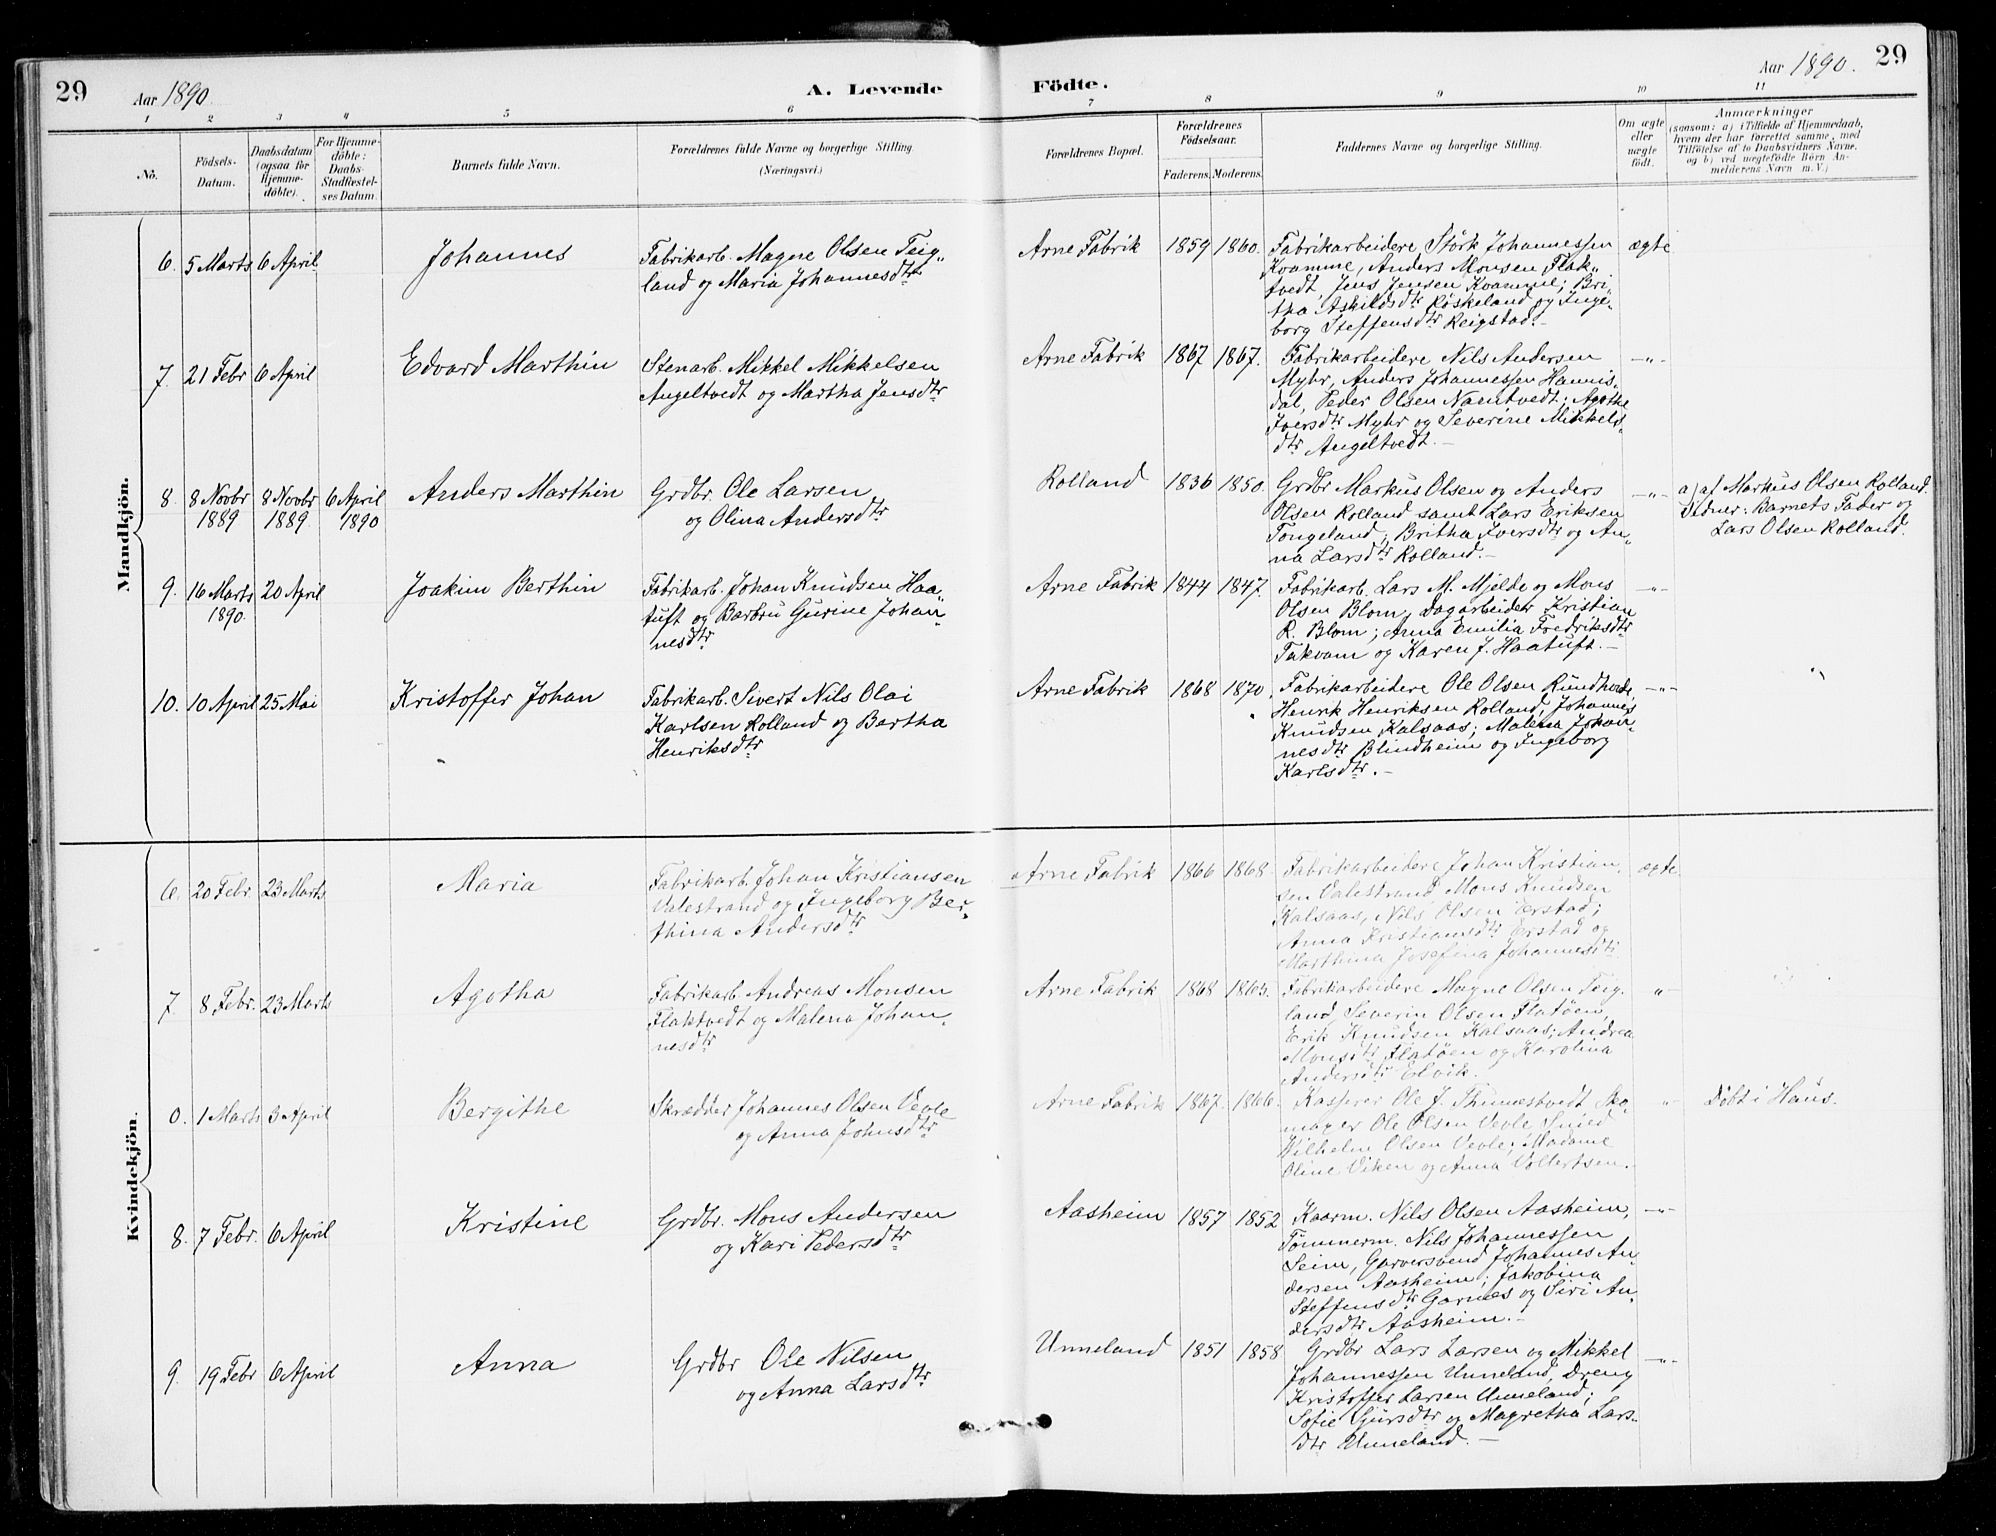 29
Aar 1890.
A. Levende
Födte.
Aar 1890.
29
1 2 3 4 5 6 7 8 9 10 11
No.
Födsels-
Datum.
Daabsdatum
(ogsaa for
Hjemme-
döbte).
For Hjemme-
döbte:
Daabs-
Stadfæstel-
ses Datum.
Barnets fulde Navn.
Forældrenes fulde Navne og borgerlige Stilling.
(Næringsvei.)
Forældrenes Bopæl.
Forældrenes
Födselsaar.
Faderens. Moderens.
Faddernes Navne og borgerlige Stilling.
Om ægte
eller
uægte
födt.
Anmærkninger
(saasom: a) i Tilfælde af Hjemmedaab,
hvem der har forrettet samme, med
Tilföielse af to Daabsvidners Navne,
og b) ved uægtefödte Börn An-
melderens Navn m. V.)
Mandkjön.
6. 5 Marts 6 April
Johannes
Fabrikarb. Magne Olsen Teig-
land og Maria Johannesdtr
Arne Fabrik 1859 1860.
Fabrikarbeidere Störk Johannessen
Kvamme, Anders Monsen Flak-
tvedt, Jens Jensen Kvamme; Bri-
tha Askildsdtr Röskeland og Inge-
borg Steffensdtr Reigstad.-
ægte
7. 21 Febr 6 April
Edvard Marthin
Stenarb. Mikkel Mikkelsen
Angeltvedt og Martha Jensdtr
Arne Fabrik 1867 1867.
Fabrikarbeidere Nils Andersen
Myhr, Anders Johannessen Hannis-
dal, Peder Olsen Namtvedt; Agathe
Iversdtr Myhr og Severine Mikkels-
dtr Angeltvedt.-
-"-
8. 8 Novbr 8 Novbr 6 April
1889 1889. 1890
Anders Marthin
Grdbr. Ole Larsen
og Olina Andersdtr
Rolland 1836 1850.
Grdbr Markus Olsen og Anders
Olsen Rolland samt Lars Eriksen
Tongeland; Britha Iversdtr og An-
na Larsdtr Rolland.-
-"-
a) af Markus Olsen Rolland.
Vidner: Barnets Fader og
Lars Olsen Rolland.
9. 16 Marts 20 April
1890.
Joakim Berthin
Fabrikarb. Johan Knudsen Haa-
tuft og Barbru Gurine Johan-
nesdtr
Arne Fabrik 1844 1847.
Fabrikarb. Lars M. Mjelde og Mons
Olsen Blom, Dagarbeider Kristian
R. Blom; Anna Emilia Fredriksdtr
Takvam og Karen J. Haatuft.-
-"-
10. 10 April 25 Mai
Kristoffer Johan
Fabrikarb. Sivert Nils Olai
Karlsen Rolland og Bertha
Henriksdtr
Arne Fabrik 1868 1870.
Fabrikarbeidere Ole Olsen Rundhovde,
Henrik Henriksen Rolland, Johannes
Knudsen Kalsaas; Malena Johan-
nesdtr Blindheim og Ingeborg
Karlsdtr.-
-"-
Kvindekjön.
6. 20 Febr 23 Marts
Maria
Fabrikarb. Johan Kristiansen
Valestrand og Ingeborg Ber-
thina Andersdtr
Arne Fabrik 1866 1868.
Fabrikarbeidere Johan Kristian-
sen Valestrand, Mons Knudsen
Kalsaas, Nils Olsen Erstad;
Anna Kristiansdtr Erstad og
Marthina Josefina Johannesdtr
ægte
7 8 Febr. 23 Marts
Agotha
Fabrikarb. Andreas Monsen
Flaktvedt og Malena Johan-
nesdtr
Arne Fabrik 1868 1865.
Fabrikarbeidere Magne Olsen Teig-
land, Severin Olsen Flatöen,
Erik Knudsen Kalsaas; Andrea
Monsdtr Flatöen og Karolina
Andersdtr Elvik.
"-
0. 1 Marts 3 April
Bergithe
Skrædder Johannes Olsen Vevle
og Anna Johnsdtr
Arne Fabrik 1867. 1866.
Kasserer Ole J. Thunestvedt, Sko-
mager Ole Olsen Vevle, Smed
Wilhelm Olsen Vevle; Madame
Oline Viken og Anna Vollertsen.
"-
Döbt i Haus.
8. 7 Febr. 6 April
Kristine
Grdbr. Mons Andersen
og Kari Pedersdtr
Aasheim 1857 1852
Kaarm. Nils Olsen Aasheim,
Tömmerm. Nils Johannessen
Seim, Garversvend Johannes An-
dersen Aasheim; Jakobina
Steffensdtr Garnes og Siri An-
dersdtr Aasheim.-
-"-
9. 19 Febr 6 April
Anna
Grdbr Ole Nilsen
og Anna Larsdtr
Unneland 1851 1858
Grdbr Lars Larsen og Mikkel
Johannessen Unneland, Dreng
Kristoffer Larsen Unneland;
Sofie Sjursdtr og Magretha Lars-
dtr Unneland.-
-"-